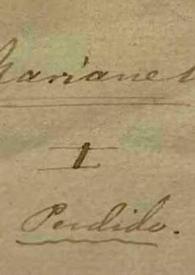 Marianel
I
Perdido.